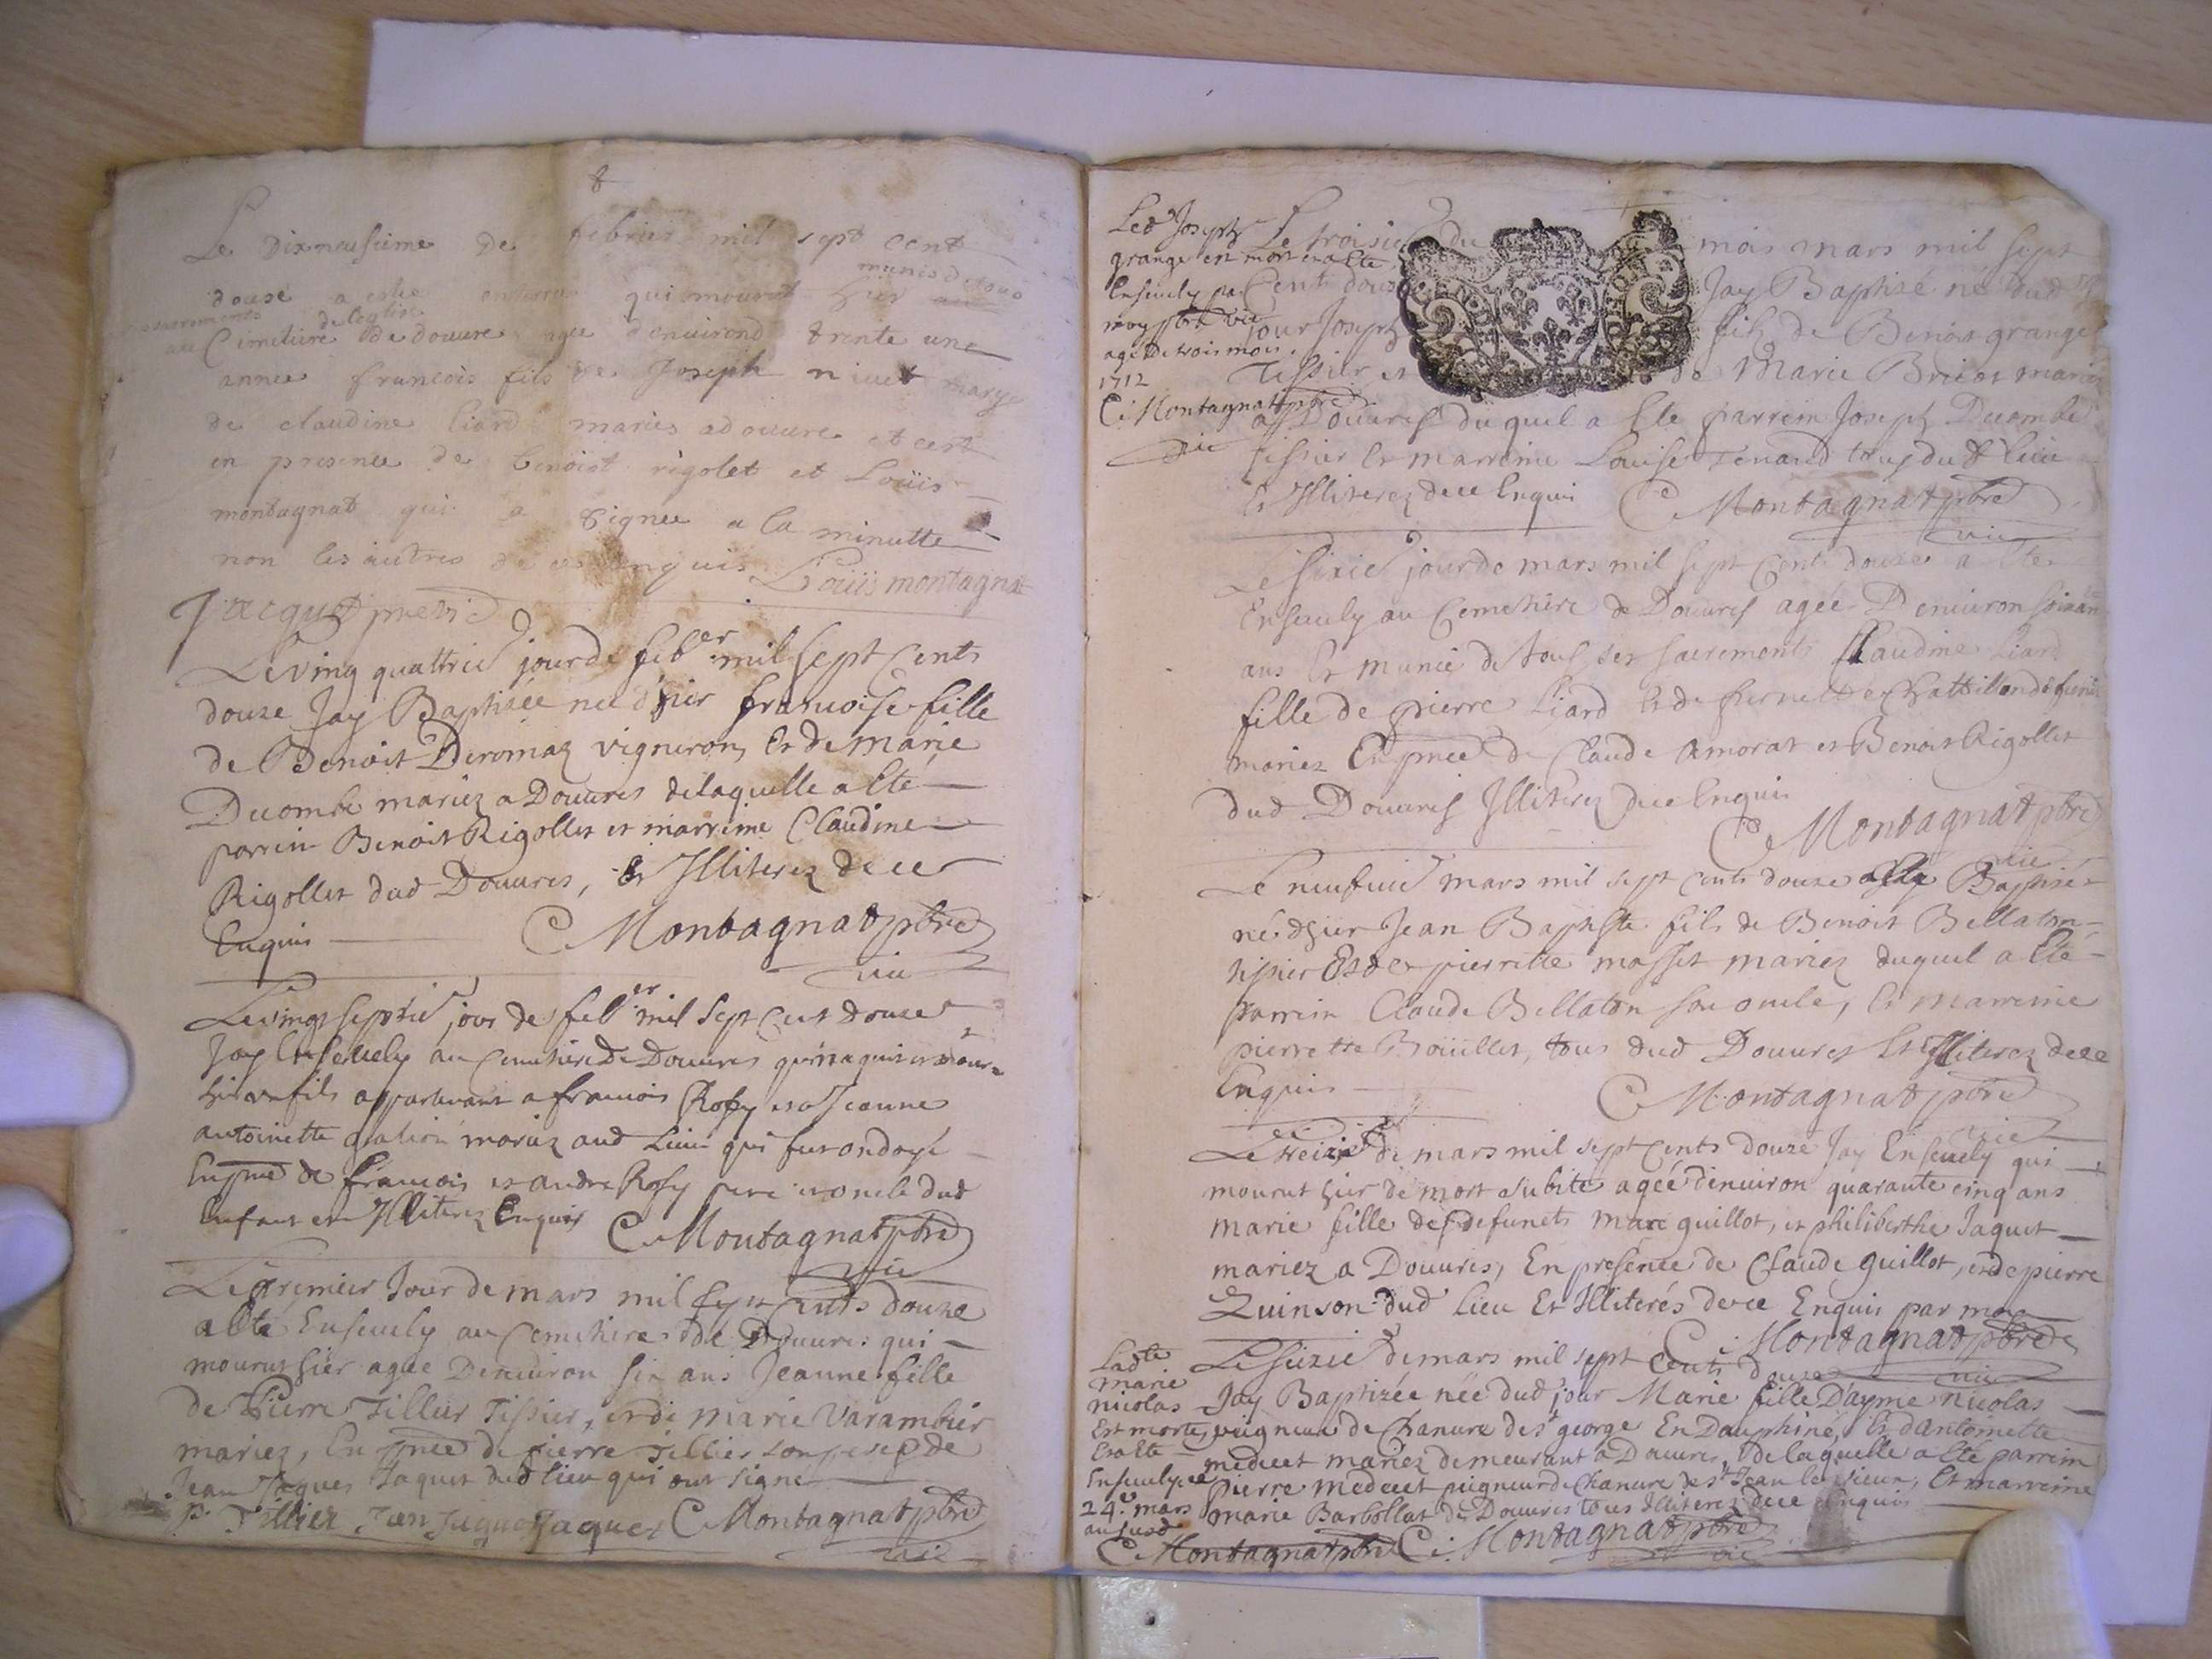 Le dixneufieme de febvrier mil sept cent
munis de tous
douse a este enterré qui mourut hier au
sacrements de leglise
au Cimetiere de douvre agee denvirond trente une
annee francois fils de Joseph nivet
de claudine liard mariés a douvre et cest
en presence de benoist rigolet et Loüis
montagnat qui a signee a la minutte
non les autres de ce enquis Loüis montagnat
Jacquet pretre
Le ving quattrie jour de feb.er mil sept cents
douze Jay Baptisée née d'hier francoise fille
de Benoit Deromaz vigneron, Et de marie
Decombe mariez a Douvres de laquelle a Eté
parrin Benoit Rigollet et marreine Claudine
Rigollet dud Douvres, Et Illiterez de ce
Enquis C Montagnat pbre
vic
Le vingt septie jour de feb.er mil sept cent douze
Jay Ensevely au Cemetiere de Douvres qui naquit et mour
hier un fils appartenant a francois Rosy et a Jeanne
antoinette mariez aud Lieu qui fut ondoyé
En pnce de francois et andre Rosy pere et oncle dud
Enfant et Illiterez Enquis C Montagnat pbre
vic
Le premier Jour de mars mil sept cents douze
a Eté Ensevely au Cemetiere de Douvres qui
mourut hier agee Denviron six ans Jeanne fille
de Pierre Tillier Tissier, et de marie Varambier
mariez, En pnce de pierre Tillier son pere et de
Jean Jaques Jaquet dud lieu qui ont signe
p. Tillier Jean Jaques Jaquet C Montagnat pbre
vic
Led Joseph
grange est mort et a Eté
Ensevely par
moy pbre vic
agé de trois mois
1712
C Montagnat pbre
vic
Le troisie du mois mars mil sept
Cents douze Jay Baptisé né dud
jour Joseph fils de Benoit grange
Tissier et de Marie Brivot mariez
a Douvres duquel a Eté parrein Joseph Decombe
tissier Et marreine Louise Tenand tous dud lieu
Et Illiterez de ce Enquis C Montagnat pbre
vic
Le sixie jour de mars mil sept Cents douze a Eté
Ensevely au Cemetiere de Douvres agée Denviron soixante
ans Et munie de tous ses sacrements Claudine Liard
fille de pierre Liard Et de pernette Chattillon defunts
mariez En pnce de Claude amorat et Benoit Rigollet
dud Douvres Illiterez de ce Enquis
C Montagnat pbre
vic
Le neufvie mars mil sept cents douze a Eté Baptisé
né d'hier Jean Baptiste fils de Benoit Bellaton
tissier Et de pierrette masset mariez duquel a Eté
parrein Claude Bellaton son oncle, Et marreine
pierrette Boüillet, tous dud Douvres Et Illiterez de ce
Enquis C Montagnat pbre
vic
Le treizie de mars mil sept cents douze Jay Ensevely qui
mourut hier de mort subite agée denviron quarante cinq ans
marie fille des defunets marc guillot, et philiberthe Jaquet
mariez a Douvres, En presence de Claude guillot, et de pierre
Quinson dud Lieu Et Illiterés de ce Enquis par moy
C Montagnat pbre
vic
Ladte
marie
nicolas
Est morte
Et a Eté
Ensevelye le
24.e mars
au susd
C Montagnat pbre
Le seizie de mars mil sept cents douze
Jay Baptizée née dud jour Marie fille D'ayme nicolas
peigneur de Chanvre de st george En Dauphiné, Et d'antoinette
medeet mariez demeurant a Douvres, de laquelle a Eté parrein
Pierre medeet peigneur de Chanvre de st Jean le vieux, Et marreine
marie Barbollat de Douvres tous Illiterez de ce Enquis
C Montagnat pbre
vic